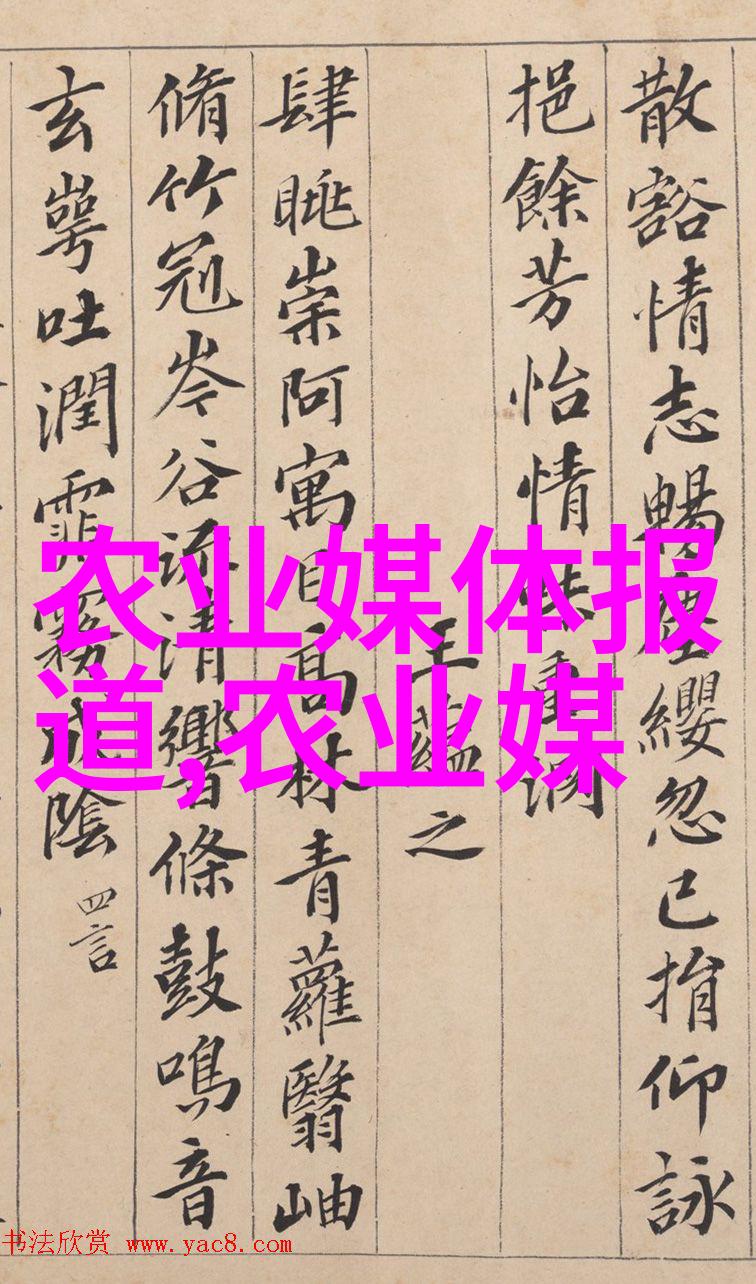 散豁情志暢塵纓忽已捐仰詠
挹餘芳怡情味重淵
王蘊之
肆眺崇阿寓目高林青蘿翳岫
脩竹冠岑谷流清響條鼓鳴音
玄崿吐潤霏霧成陰 四言
农业媒体报
道,农业媒
书法欣赏 www.yac8.com